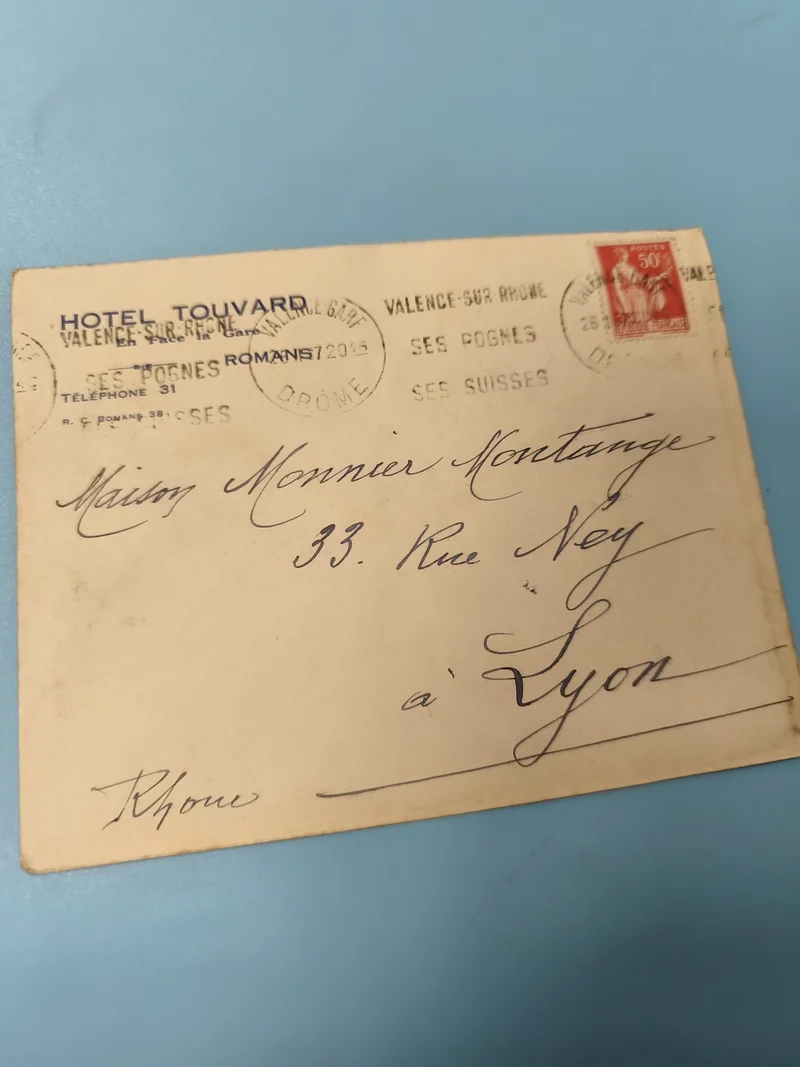 HOTEL TOUVARD
En Face la Gare
ROMANS
TÉLÉPHONE 31
R. C. ROMANS 38
VALENCE-SUR-RHONE
SES POGNES
SES SUISSES
VALENCE GARE
20
DRÔME
VALENCE-SUR-RHONE
SES POGNES
SES SUISSES
VALENCE GARE
POSTES
50
Maison Monnier Montange
33. Rue Ney
à Lyon
Rhone